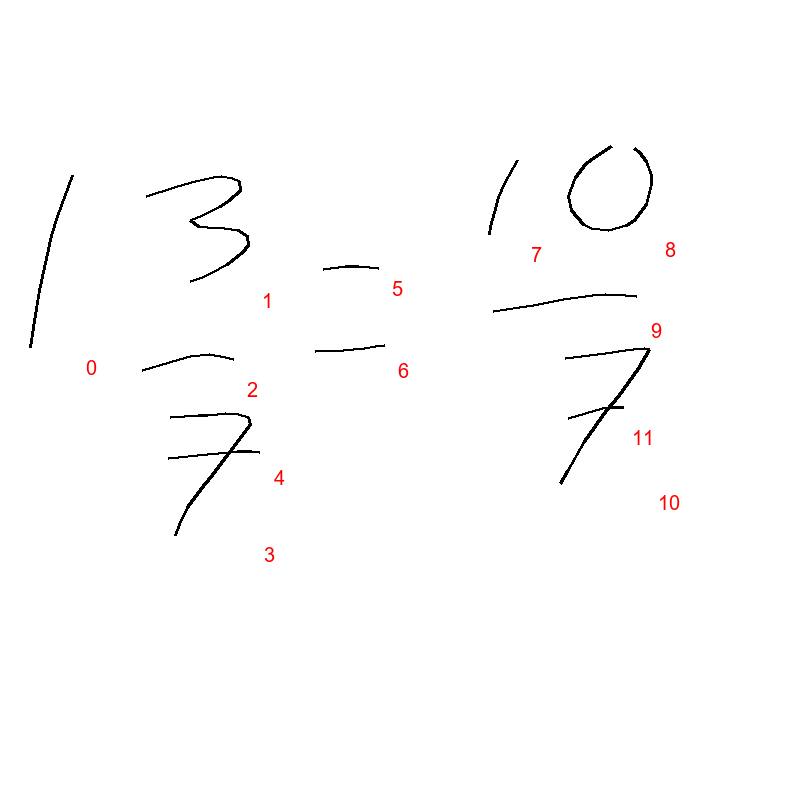 1 3/7 = 10/7
0 1 2 3 4 5 6 7 8 9 10 11